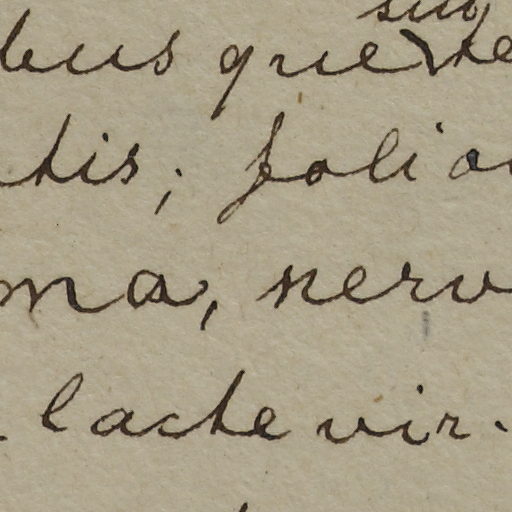 sug
bus que te
tis; folio
ma, nerv
lacte vir.